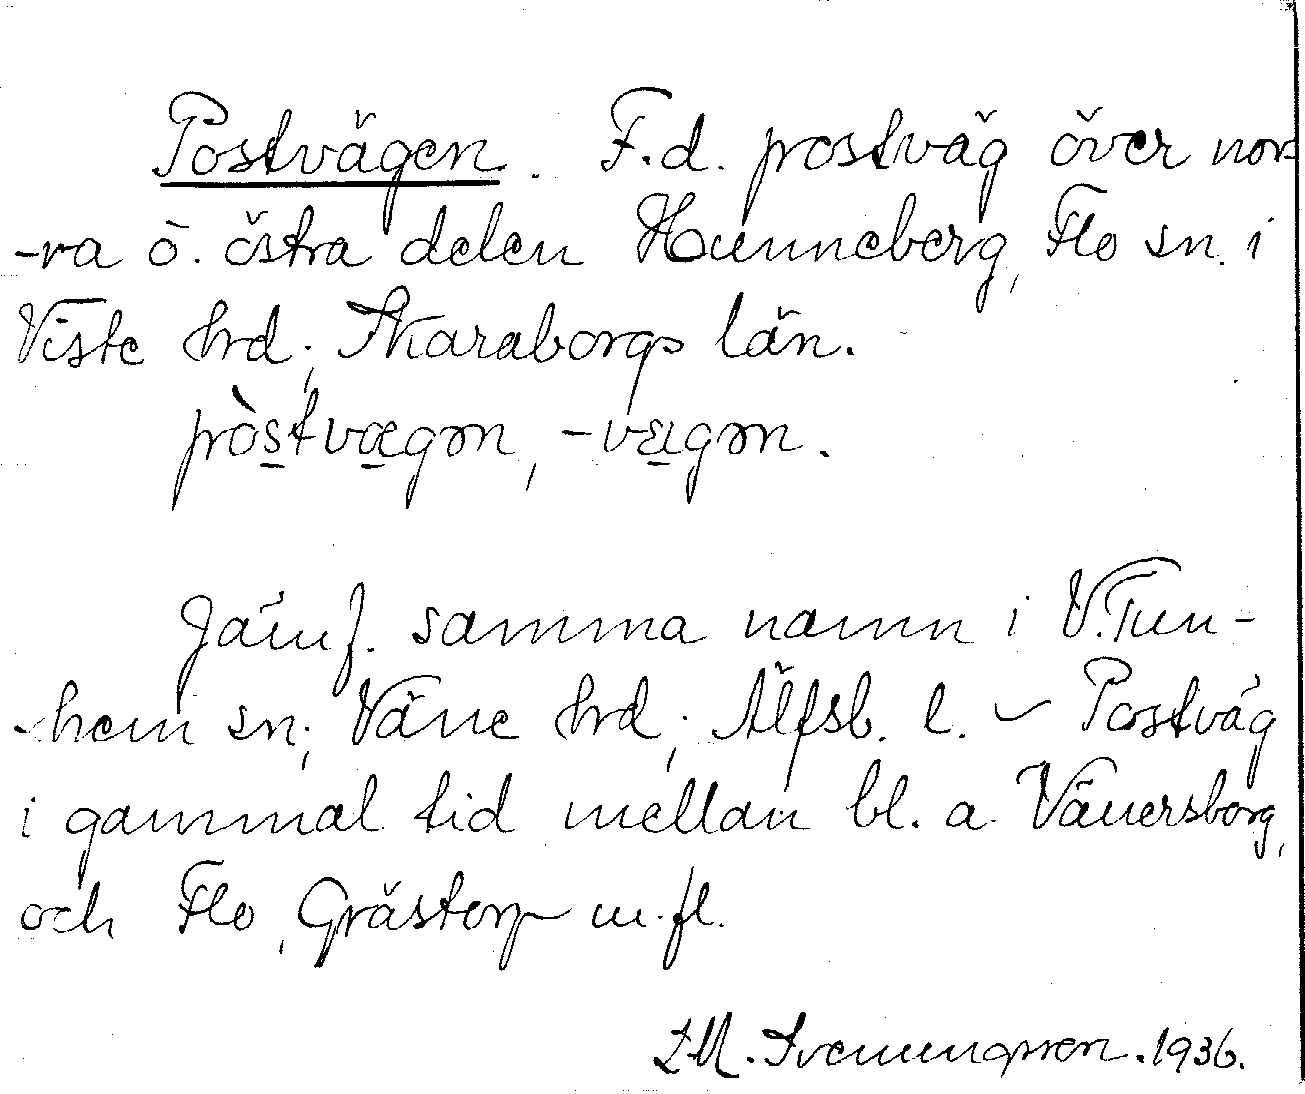 Postvägen. F.d. postväg över nor-
-ra o. östra delen Hunneberg, Flo sn. i
Viste hrd; Skaraborgs län.
pòstvægən, -vɛgən.
Jämf. samma namn i V.Tun-
-hem sn; Väne hrd; Älfsb. l. – Postväg
i gammal tid mellan bl. a. Vänersborg,
och Flo, Grästorp m.fl.
Svenungsson. 1936.